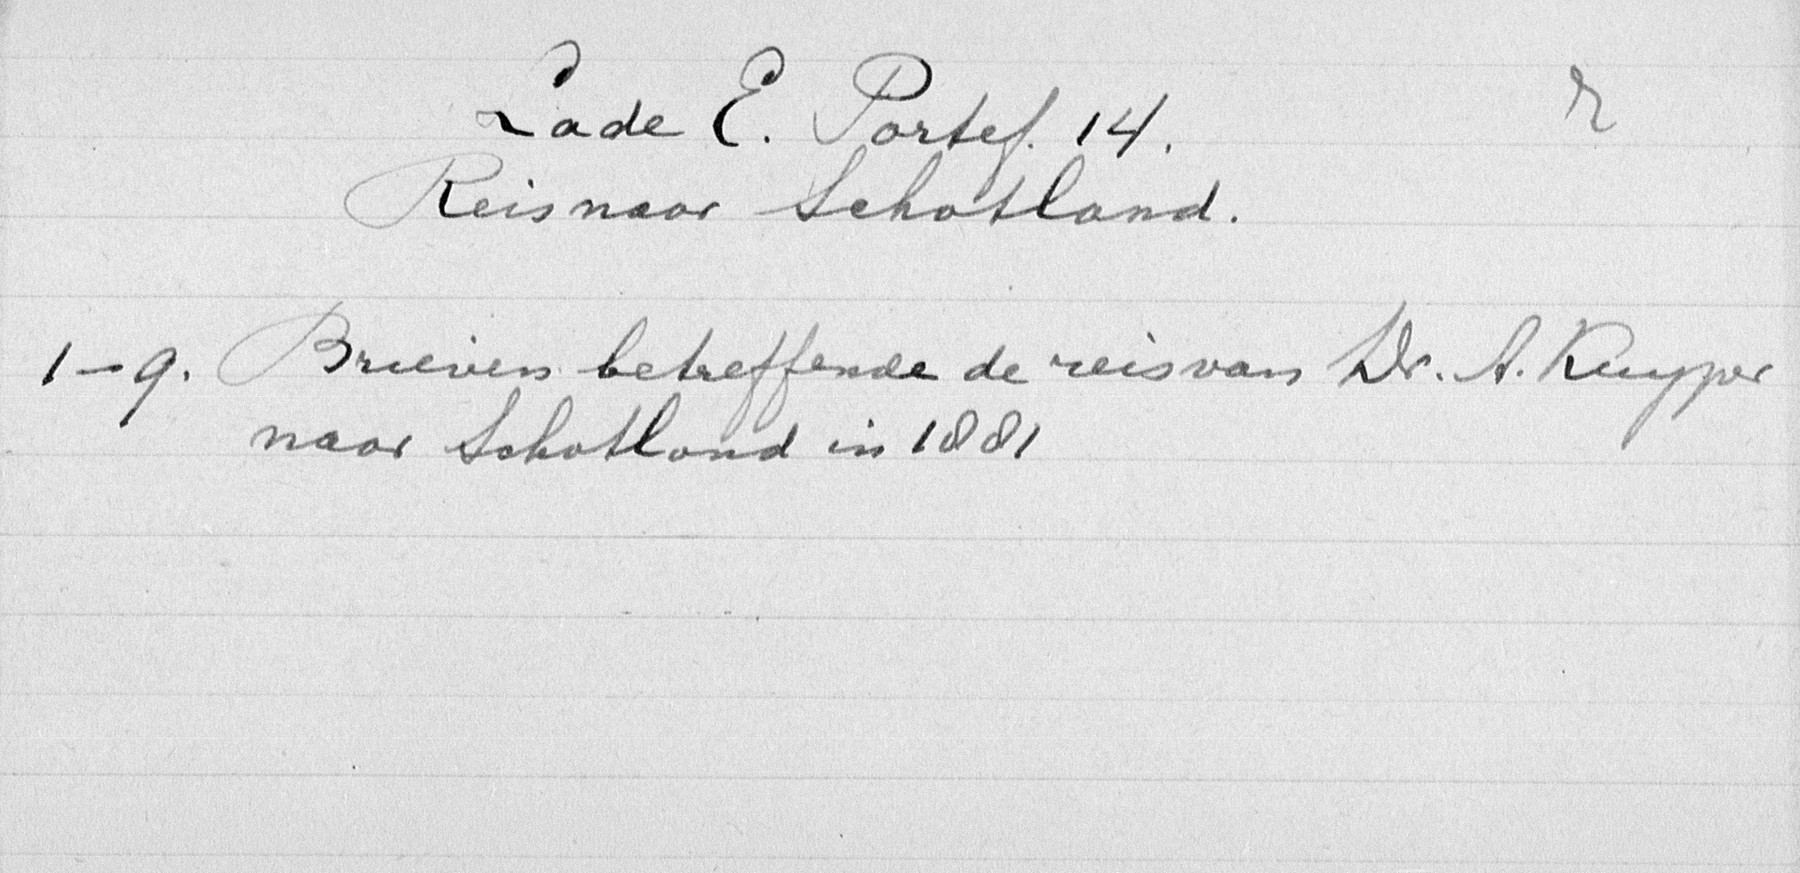 Lade E. Portef. 14.
Reis naar Schotland.
1-9. Brieven betreffende de reis van Dr. A. Kuyper
naar Schotland in 1881